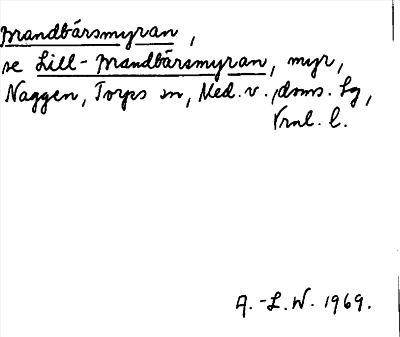 Mandbärsmyran,
se Lill-Mandbärsmyran, myr,
Naggen, Torps sn, Med. v., doms. lg,
Vrnl. l.
A.-L.W. 1969.